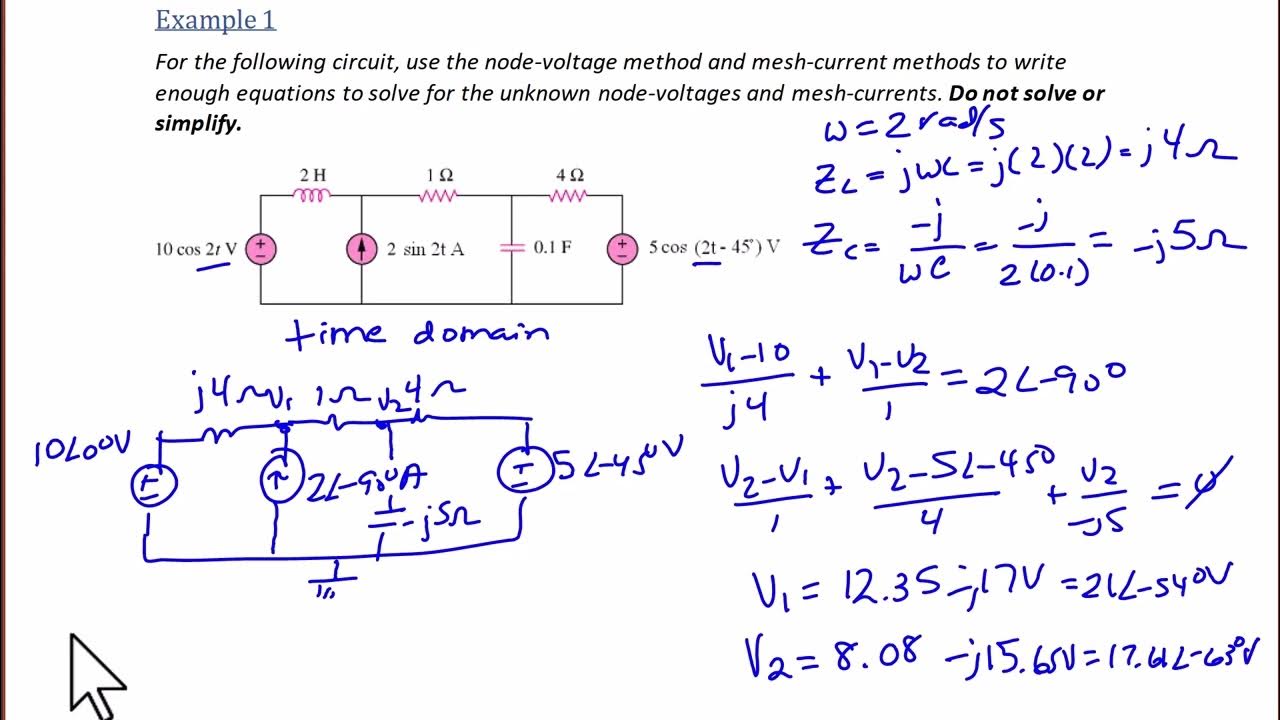 Example 1
For the following circuit, use the node-voltage method and mesh-current methods to write
enough equations to solve for the unknown node-voltages and mesh-currents. Do not solve or
simplify.
ω = 2 rad/s
Z_L = jωL = j(2)(2) = j4Ω
Z_C = -j/ωC = -j/2(0.1) = -j5Ω
2 H 1 Ω 4 Ω
10 cos 2t V + − 2 sin 2t A 0.1 F + − 5 cos (2t - 45°) V
time domain
j4Ω V₁ 1Ω V₂ 4Ω
10∠0°V + − 2∠-90°A -j5Ω + − 5∠-45°V
(V₁-10)/j4 + (V₁-V₂)/1 = 2∠-90°
(V₂-V₁)/1 + (V₂-5∠-45°)/4 + V₂/-j5 = 0
V₁ = 12.35 - j17V = 21∠-54°V
V₂ = 8.08 - j15.65V = 17.61∠-63°V